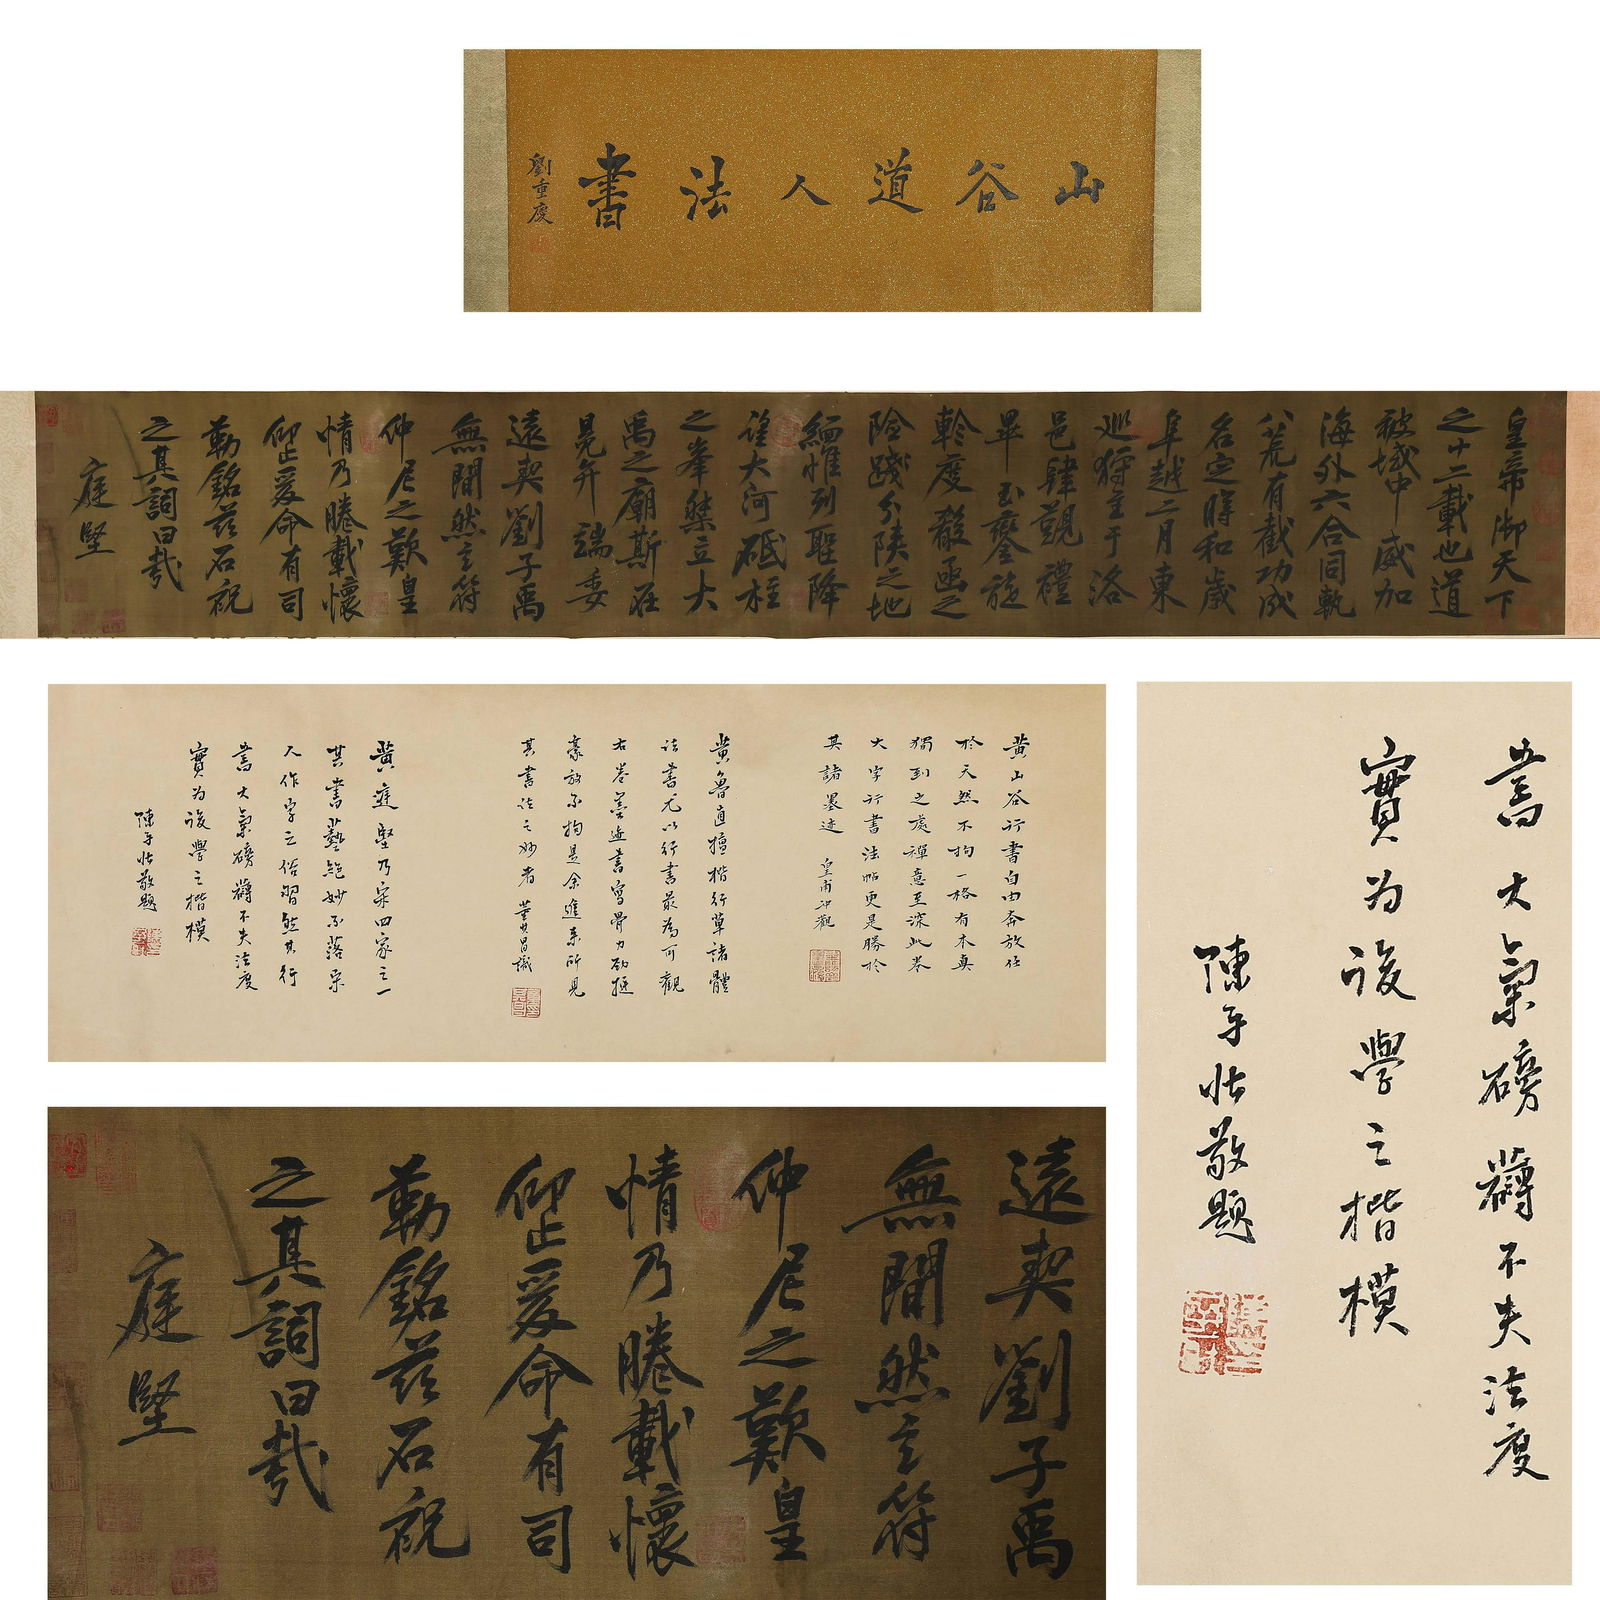 山谷道人法書
劉重慶
皇帝御天下
之十二載也道
被域中威加
海外六合同軌
八荒有截功成
名定時和歲
阜越二月東
巡狩至于洛
邑肆覲禮
畢玉鑾旋
軫度殽函之
險踐分陝之地
緬惟列聖降
望大河砥柱
之峯桀立大
禹之廟斯在
冕弁端委
遠契劉子禹
無間然玄符
仲尼之歎皇
情乃睠載懷
仰止爰命有司
勒銘茲石祝
之其詞曰哉
庭堅
黃山谷行書自由奔放任
於天然不拘一格有本真
獨到之處禪意至深此卷
大字行書法帖更是勝於
其諸墨迹 皇甫沖觀
黃魯直擅楷行草諸體
法書尤以行書最為可觀
右卷墨迹書寫骨力勁挺
豪放不拘是余進來所見
其書法之妙者 董其昌識
黃庭堅乃宋四家之一
其書藝絕妙不落宋
人作字之俗習然其行
書大氣磅礴不失法度
實為後學之楷模
陳年怗敬題
書大氣磅礴不失法度
實為後學之楷模
陳年怗敬題
遠契劉子禹
無間然玄符
仲尼之歎皇
情乃睠載懷
仰止爰命有司
勒銘茲石祝
之其詞曰哉
庭堅